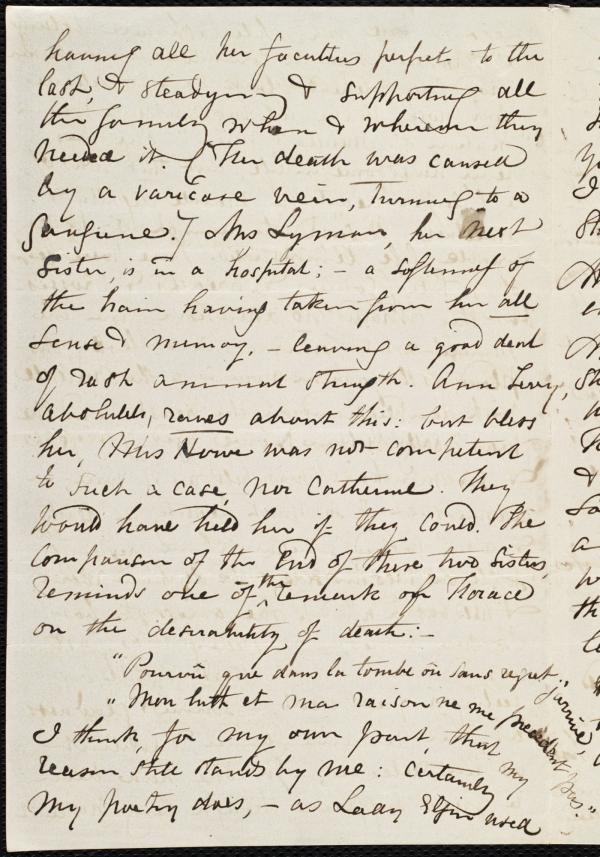 having all her faculties perfect to the
last, & steadying & supporting all
the family when & wherever they
needed it. (Her death was caused
by a varicose vein, turning to a
gangrene.) Mrs Lyman, her next
sister, is in a hospital; – a softening of
the brain having taken from her all
sense & memory, – leaving a good deal
of rash animal strength. Ann
absolutely, raves about this: but bless
her, Mrs Howe was not competent
to such a case, nor Catherine. They
would have held her if they could. The
comparison of the End of these two sisters,
reminds one of the remark of Horace
on the desirability of death: –
"Pourvu que dans la tombe où sans regret j'arrive,
"Mon luth et ma raison ne me précèdent pas."
I think, for my own part, that my
reason still stands by me: certainly
my poetry does, – as Lady Elgin used